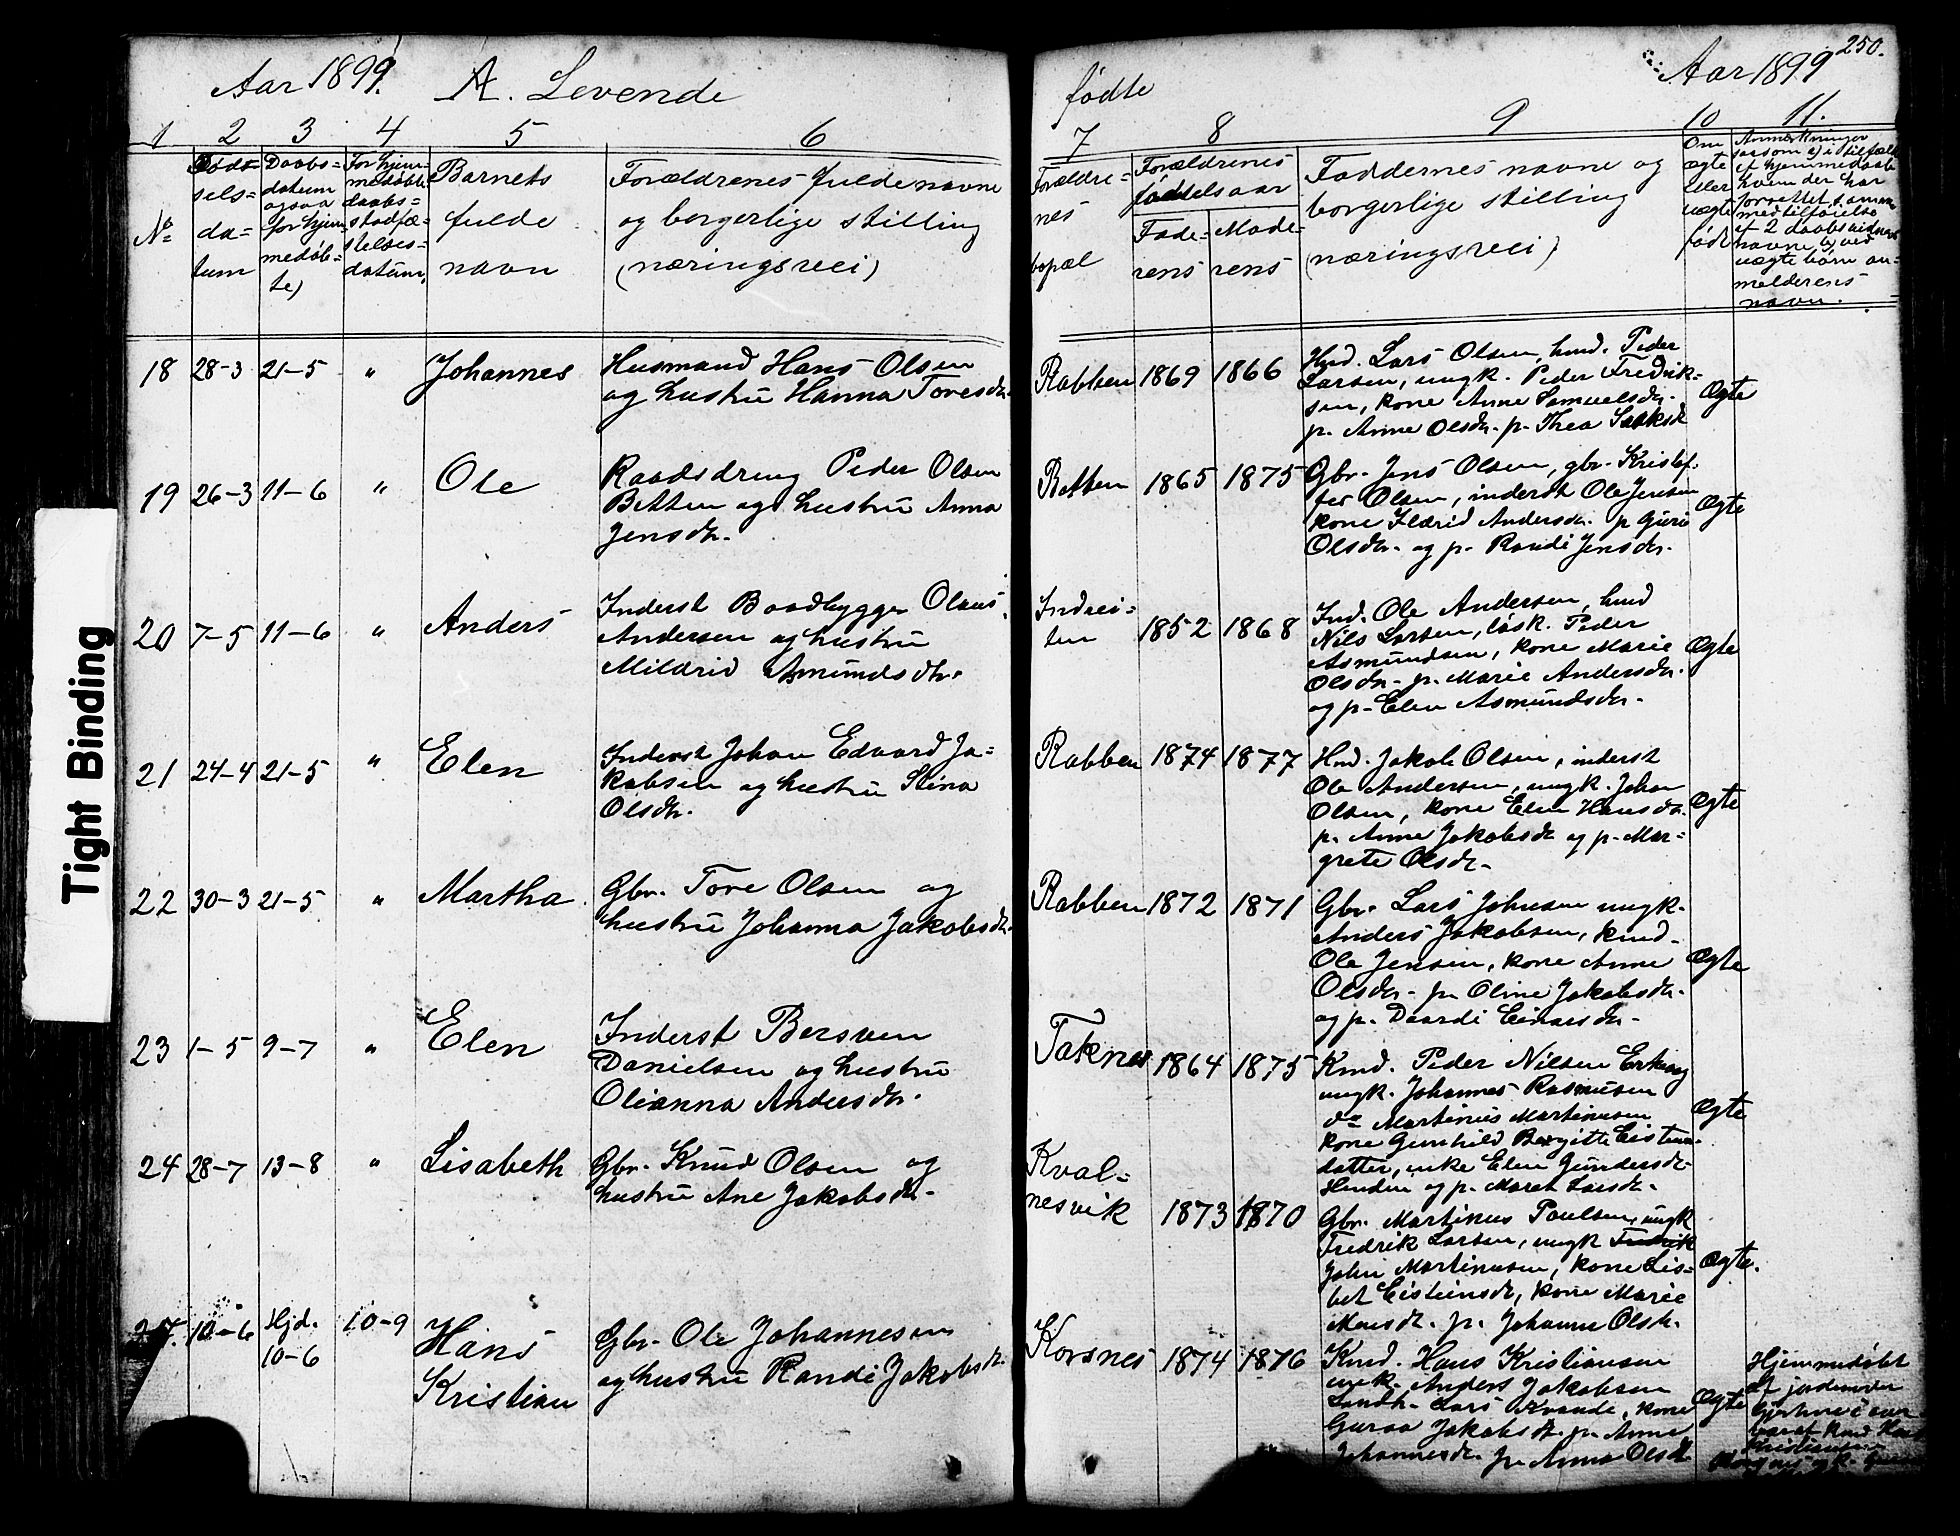 250.
Aar 1899. A. Levende
fødte
Aar 1899
1 2 3 4 5 6
7 8 9 10 11.
No
Fødselsdatum
Daabsdatum ogsaa for hjemmedøbte)
For hjemmedøbte daabsstadfæstelsesdatum.
Barnets fulde navn
Forældrenes fulde navne
og borgerlige stilling
(næringsvei)
Forældrenes bopæl
Forældrenes fødselsaar
Faderens
Moderens
Faddernes navne og
borgerlige stilling
(næringsvei)
Om ægte eller uægte født
Anmerkninger saasom a) i tilfælde af hjemmedaab hvem der har forrettet samme med tilføielse af 2 daabsvidners navne, b) ved uægte børn anmelderens navn.
Tight Binding
18 28-3 21-5 " Johannes
Husmand Hans Olsen
og hustru Hanna Toresdr.
Rabben 1869 1866
Hmd. Lars Olsen, hmd. Peder
Larsen, ungk. Peder Fredrik=
sen, kone Anne Samuelsdr.
p. Anne Olsdr. p. Thea
Ægte
19 26-3 11-6 " Ole
Peder Olsen
Betten og hustru Anna
Jensdr.
Betten 1865 1875
Gbr. Jens Olsen, gbr. Kristof=
fer Olsen, inderst Ole Jensen
kone Andersdr. p Guri
Olsdr. og p. Randi Jensdr.
Ægte
20 7-5 11-6 " Anders
Inderst Baadbygger Olaus
Andersen og hustru
Mildrid Asmundsdr.
Indrei=
ten 1852 1868
Ind. Ole Andersen, hmd
Nils Larsen, løsk. Peder
Asmundsen, kone Marie
Olsdr. p. Marie Andersdr.
og p. Elen Asmundsdr.
Ægte
21 24-4 21-5 " Elen
Inderst Johan Edvard Ja=
kobsen og hustru Stina
Olsdr.
Rabben 1874 1877
Hmd. Jakob Olsen, inderst
Ole Andersen, ungk. Johan
Olsen, kone Elen Hansdr.
p. Anne Jakobsdr og p. Mar=
grete Olsdr.
Ægte
22 30-3 21-5 " Martha
Gbr. Tore Olsen og
hustru Johanna Jakobsdr.
Rabben 1872 1871
Gbr. Lars Johnsen ungk.
Anders Jakobsen, kmd.
Ole Jensen, kone Anne
Olsdr. p. Oline Jakobsdr.
og p. Daardi Einarsdr.
Ægte
23 1-5 9-7 " Elen
Inderst Bersven
Danielsen og hustru
Olianna Andersdr.
Taknes 1864 1875
Kmd. Peder Nilsen
ungk. Johannes Rasmusen
do Martinus Martinusen
kone Gunhild Bergitte Eistens=
datter, enke Elen Gundersdr.
og p. Maret Larsdr.
Ægte
24 28-7 13-8 " Lisabeth
Gbr. Knud Olsen og
hustru Ane Jakobsdr.
Kval=
nesvik 1873 1870
Gbr. Martinus Poulsen, ungk
Fredrik Larsen, ungk Fredrik
John Martinusen, kone Lis=
bet Eistensdr, kone Marie
p. Johanne Olsdr.
Ægte.
10-6 Hjd. 10-6 10-9 Hans
Kristian
Gbr. Ole Johannesen
og hustru Randi Jakobsdr.
Korsnes 1874 1876
Kmd. Hans Kristiansen
ungk. Anders Jakobsen
Landh. Lars Kvande, kone
Guroa Jakobsdr. p. Anne
Johannesdr. p. Anna Olsdr
Ægte
Hjemmedøbt
af jordemoder
Kristiansen